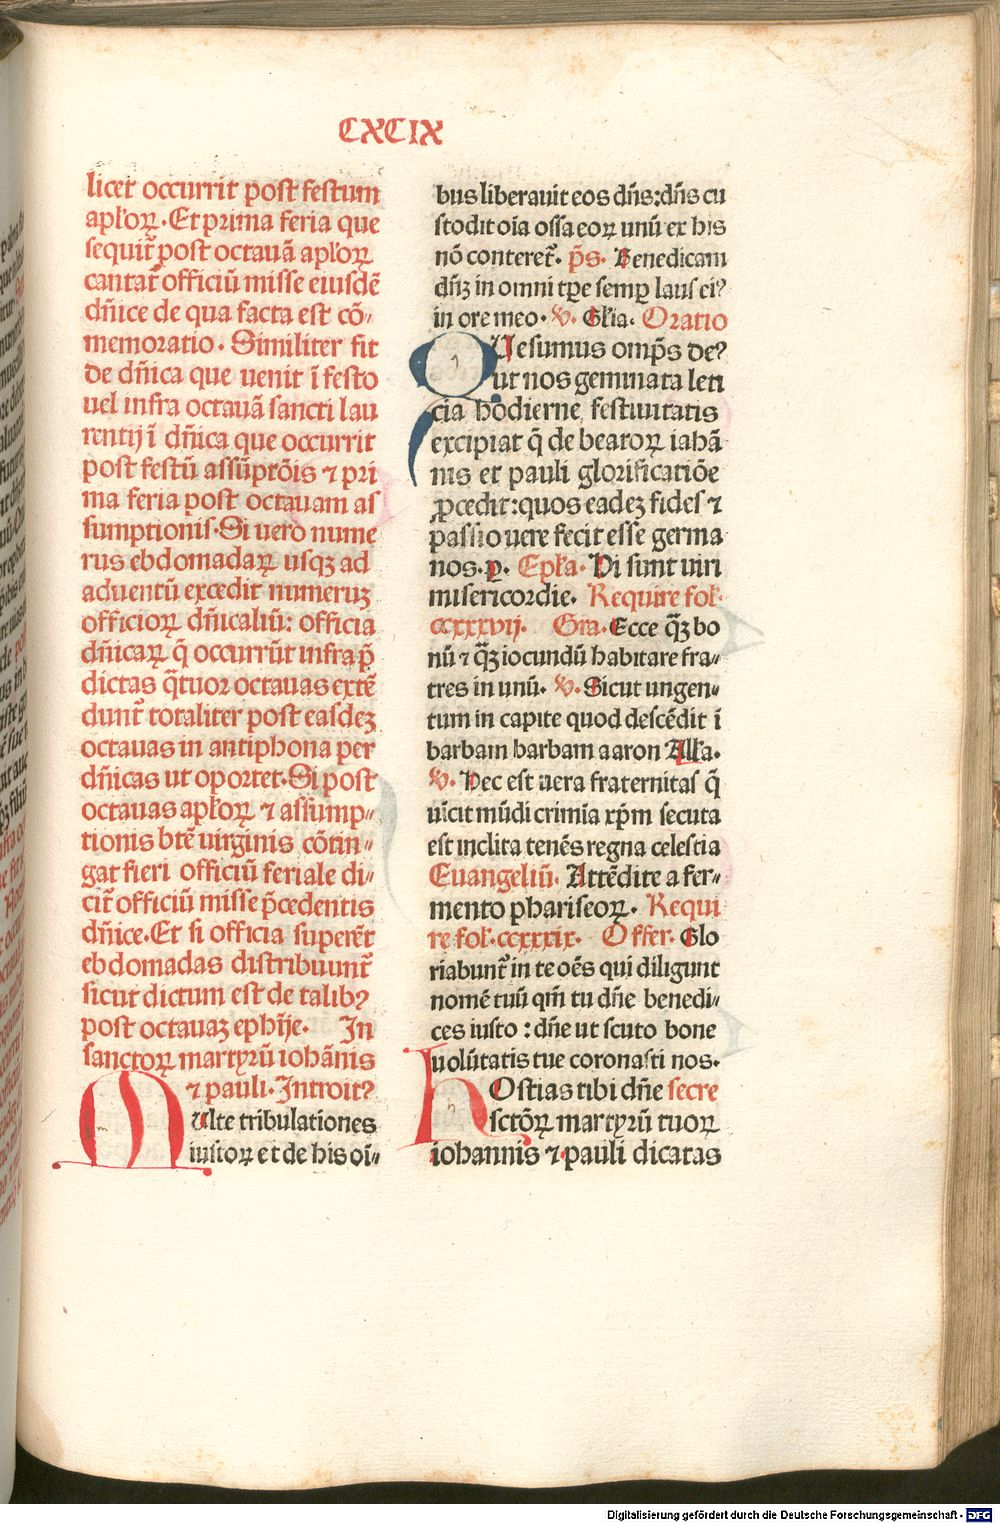 CXCIX
licet occurrit post festum
apl'oꝝ. Et prima feria que
sequit᷑ post octauā apl'oꝝ
cantat᷑ officiū misse eiusdē
dn̄ice de qua facta est cō-
memoratio. Similiter fit
de dn̄ica que uenit ī festo
uel infra octauā sancti lau
rentij ī dn̄ica que occurrit
post festū assūptōis ⁊ pri
ma feria post octauam as
sumptionis. Si uero nume
rus ebdomadaꝝ usqꝫ ad
aduentū excedit numeruꝫ
officioꝝ dn̄icaliū: officia
dn̄icaꝝ q̄ occurrūt infra p̄
dictas q̄tuor octauas extē
dunt᷑ totaliter post easdeꝫ
octauas in antiphona per
dn̄icas ut oportet. Si post
octauas apl'oꝝ ⁊ assump-
tionis btē uirginis cōtin-
gat fieri officiū feriale di-
cit᷑ officiū misse p̄cedentis
dn̄ice. Et si officia superēt
ebdomadas distribuunt᷑
sicut dictum est de talibꝰ
post octauaꝫ ephīje. In
sanctoꝝ martyrū iohānis
⁊ pauli. Introitꝰ
Multe tribulationes
iustoꝝ et de his oī-
bus liberauit eos dn̄s: dn̄s cu
stodit oīa ossa eoꝝ unū ex his
nō conteret᷑. p̄s. Benedicam
dn̄ꝫ in omni tꝑe semꝑ laus eiꝰ
in ore meo. ℣. Gl'ia. Oratio
QUesumus omp̄s deꝰ
ut nos geminata leti
cia hodierne festiuitatis
excipiat q̄ de beatoꝝ iahā
nis et pauli glorificatiōe
ꝓcedit: quos eadeꝫ fides ⁊
passio uere fecit esse germa
nos. ꝑ. Epl'a. Hi sunt uiri
misericordie. Require fol'.
ccxxxvij. Gra. Ecce q̄ꝫ bo
nū ⁊ q̄ꝫ iocundū habitare fra-
tres in unū. ℣. Sicut ungen-
tum in capite quod descēdit ī
barbam barbam aaron Alla.
℣. Hec est uera fraternitas q̄
uīcit mūdi crimīa xp̄m secuta
est inclita tenēs regna celestia
Euangeliū. Attēdite a fer-
mento phariseoꝝ. Requi
re fol'. ccxxxix. Offer. Glo
riabunt᷑ in te oēs qui diligunt
nomē tuū qm̄ tu dn̄e benedi-
ces iusto: dn̄e ut scuto bone
uolūtatis tue coronasti nos.
hOstias tibi dn̄e secre
sctōꝝ martyrū tuoꝝ
iohannis ⁊ pauli dicatas
Digitalisierung gefördert durch die Deutsche Forschungsgemeinschaft - DFG